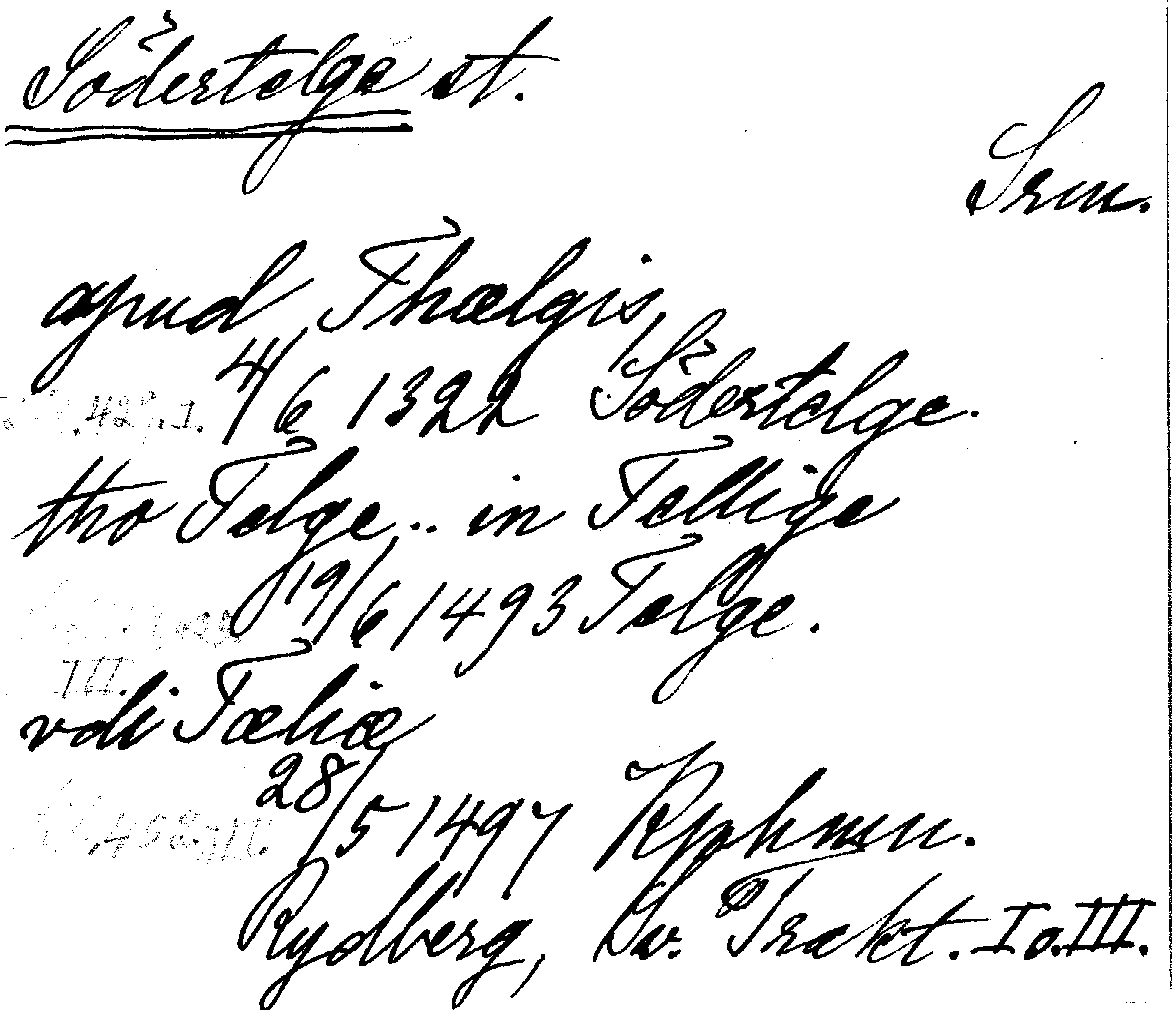 Södertelge st.
Srm.
apud Thælgis,
4/6 1322 Södertelge.
. 427. I.
tho Telge .. in Tellige
19/6 1493 Telge.
III.
vdi Tæliæ
28/5 1497 Kphmn.
. 452. III.
Rydberg, Sv. Trakt. I o. III.